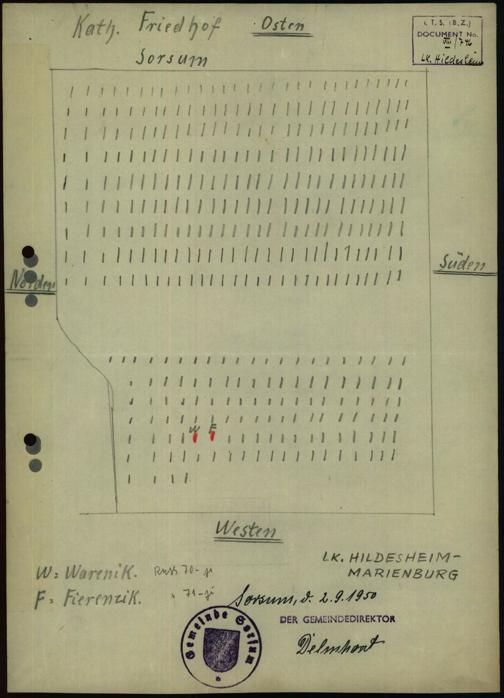 Kath. Friedhof Osten
Sorsum
I. T. S. (B. Z.)
DOCUMENT No.
LK. Hildesheim
Norden
Süden
W F
Westen
W = Warenik. Russ 70-ji
F = Fierenzik. " 71-ji
LK. HILDESHEIM-
MARIENBURG
Sorsum, d. 2.9.1950
DER GEMEINDEDIREKTOR
Gemeinde Sorsum